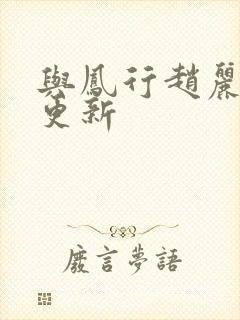 與鳳行趙麗
更新
廢言夢語